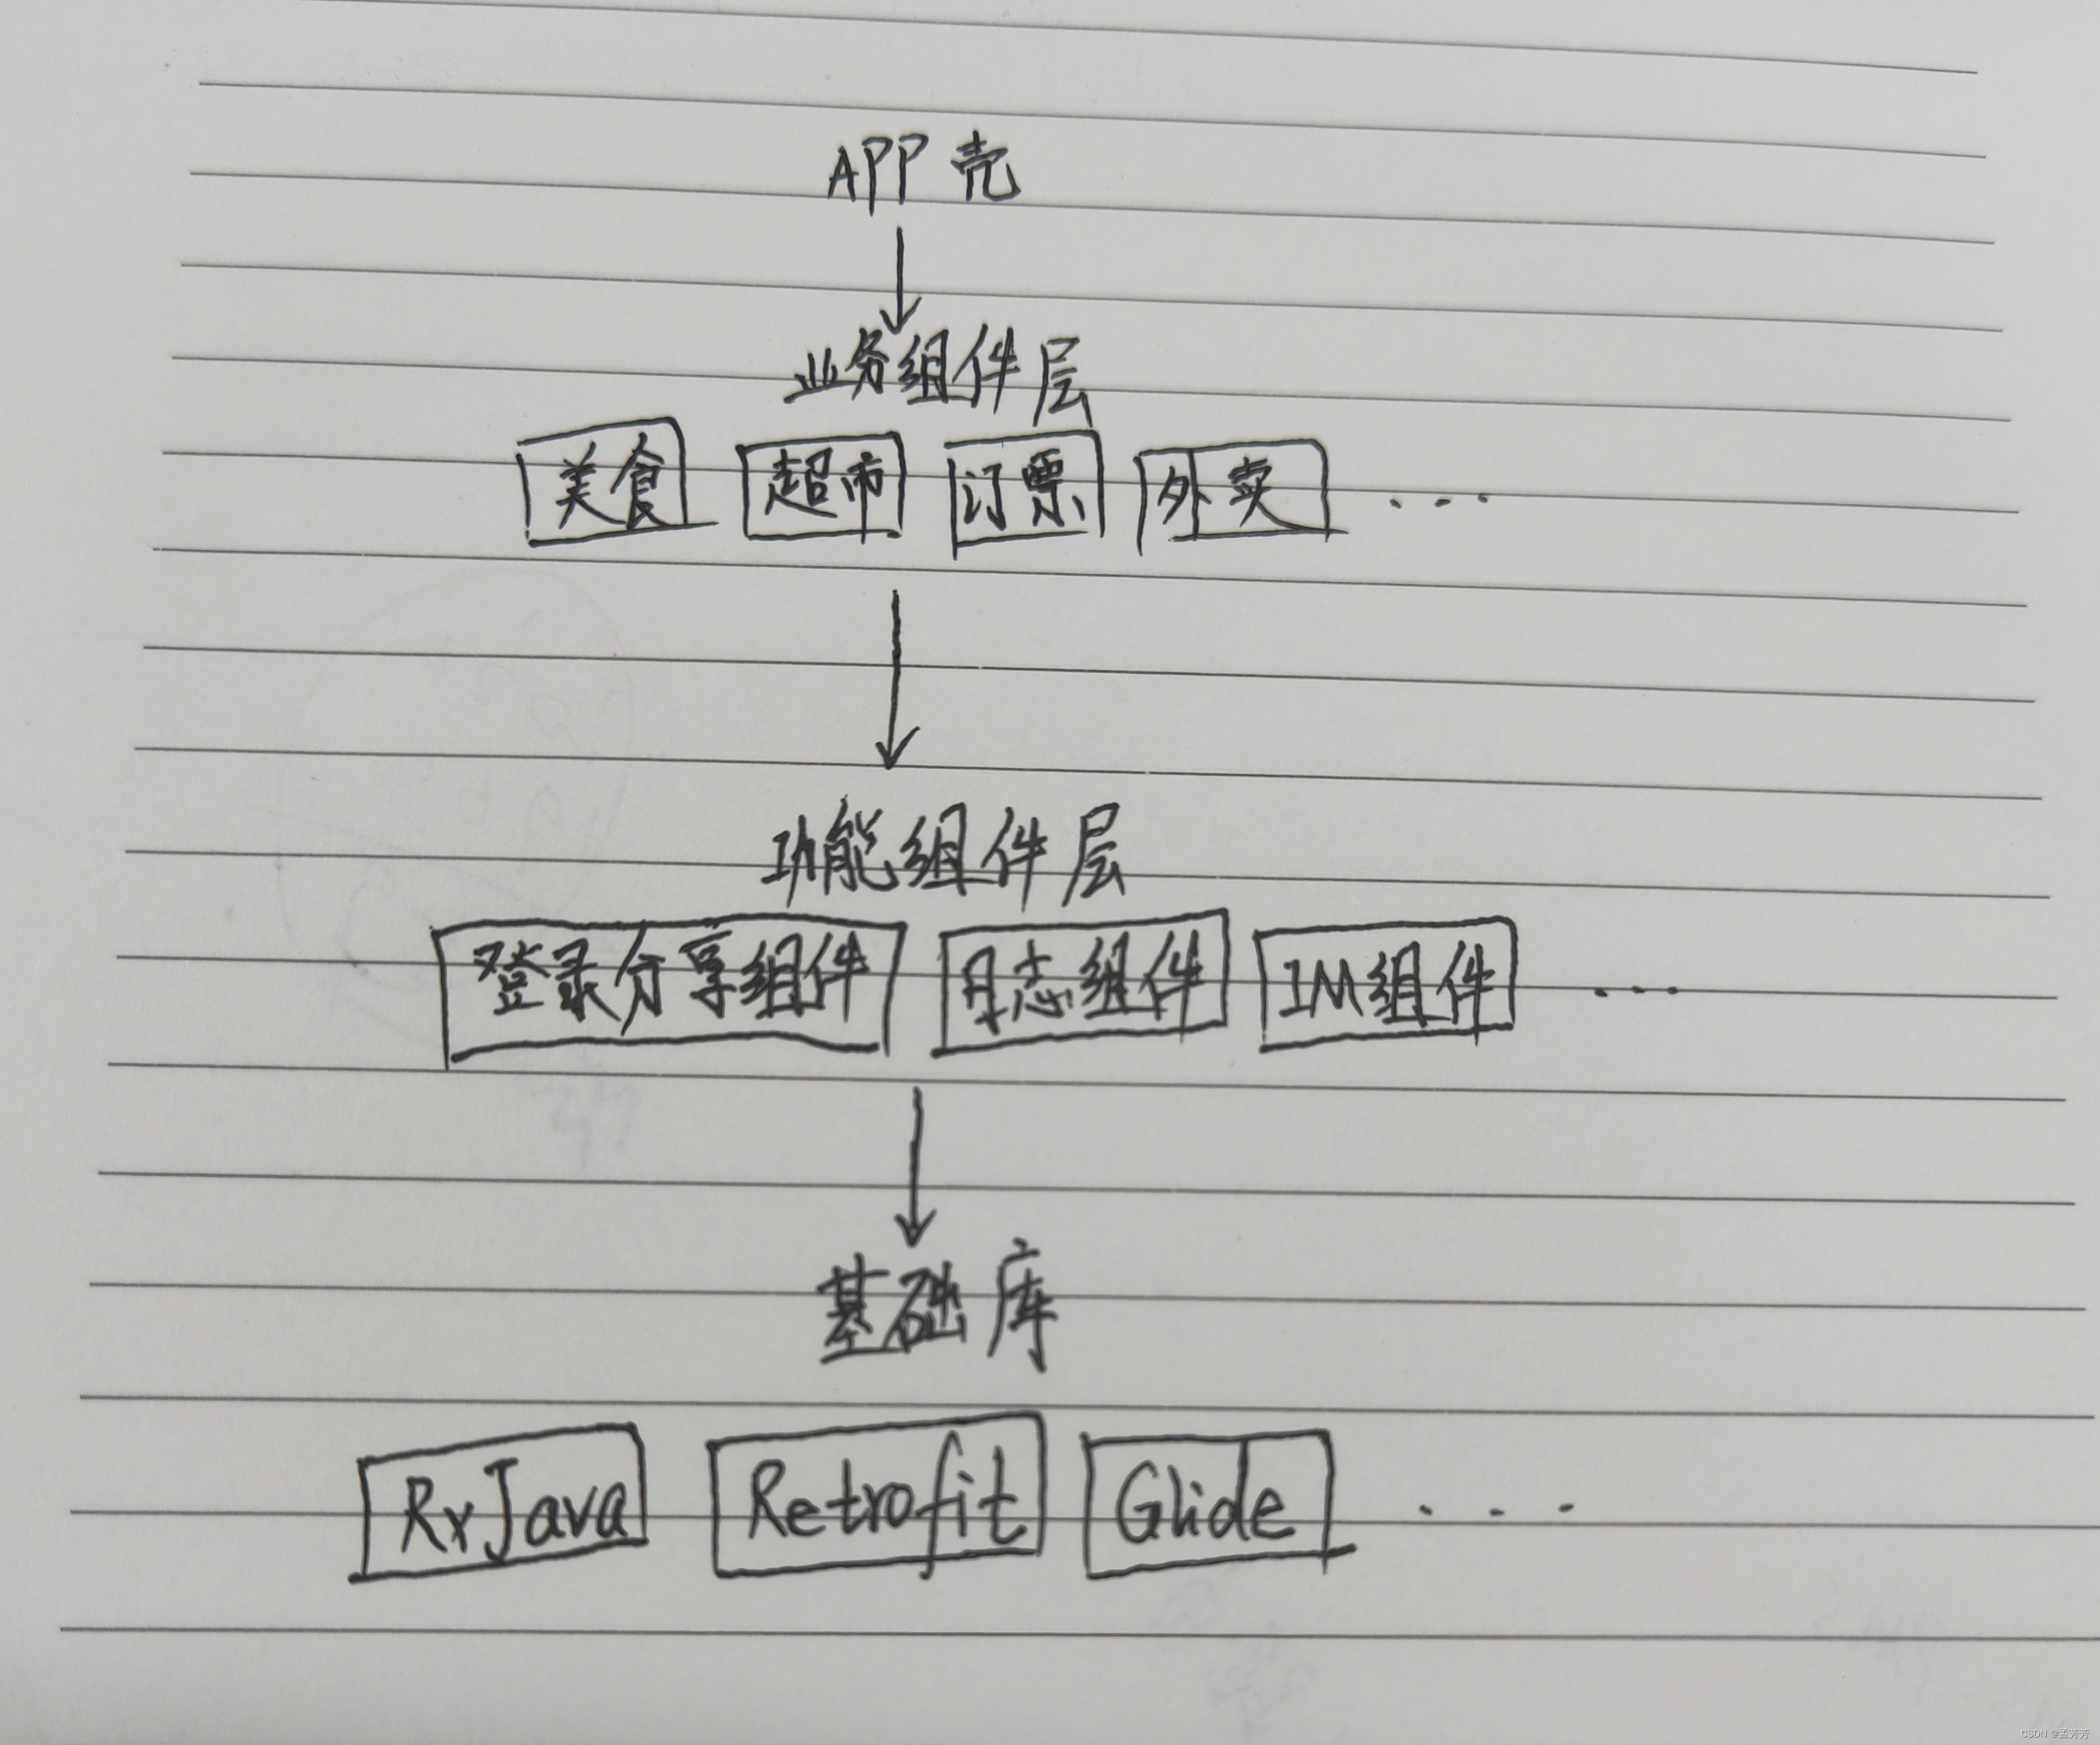 APP 壳
业务组件层
美食 超市 订票 外卖 ...
功能组件层
登录分享组件 日志组件 IM组件 ...
基础库
RxJava Retrofit Glide ...
CSDN @孟芳芳